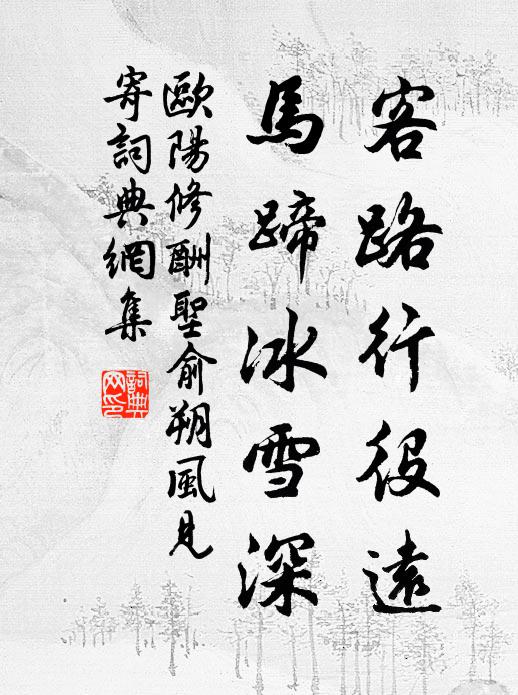 客路行役遠
馬蹄冰雪深
歐陽修酬聖俞朔風見
寄詞典網集
詞典
网印